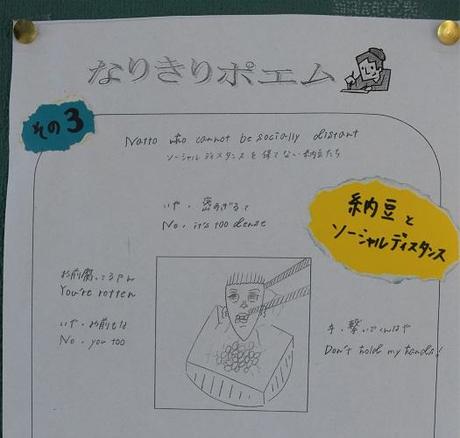 なりきりポエム
その3
Natto who cannot be socially distant
ソーシャルディスタンスを保てない納豆たち
納豆と
ソーシャルディスタンス
いや、密すぎるて
No. it's too dense
お前腐ってるやん
You're rotten
いや、お前もな
No. you too
手、繋いでくんなや
Don't hold my hands!